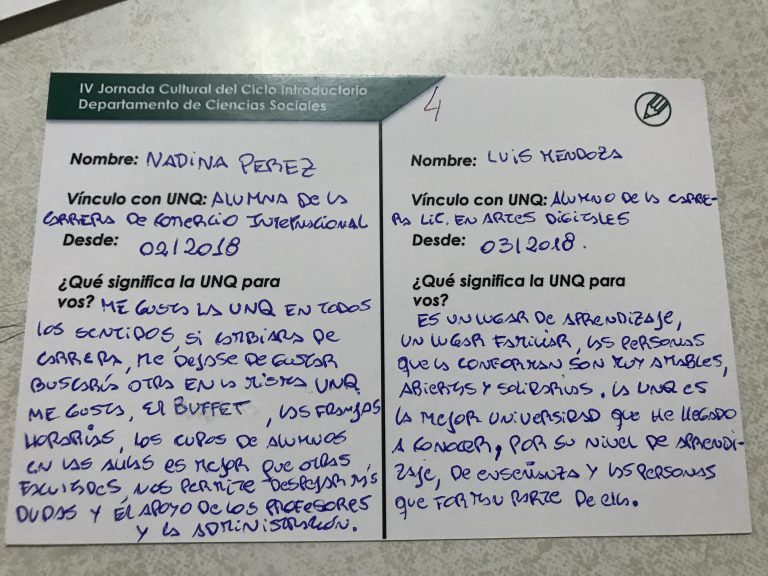 IV Jornada Cultural del Ciclo Introductorio
Departamento de Ciencias Sociales
4
Nombre: NADINA PEREZ
Vínculo con UNQ: ALUMNA DE LA
CARRERA DE COMERCIO INTERNACIONAL
Desde: 02/2018
¿Qué significa la UNQ para
vos? ME GUSTA LA UNQ EN TODOS
LOS SENTIDOS, SI CAMBIARA DE
CARRERA, ME DEJASE DE GUSTAR
BUSCARÍA OTRA EN LA MISMA UNQ
ME GUSTA, El BUFFET, LAS FRANJAS
HORARIAS, LOS CUPOS DE ALUMNOS
EN LAS AULAS ES MEJOR QUE OTRAS,
NOS PERMITE DESPEJAR MÁS
DUDAS Y EL APOYO DE LOS PROFESORES
Y LA ADMINISTRACIÓN.
Nombre: LUIS MENDOZA
Vínculo con UNQ: ALUMNO DE LA CARRE-
RA LIC. EN ARTES DIGITALES
Desde: 03/2018.
¿Qué significa la UNQ para
vos?
ES UN LUGAR DE APRENDIZAJE,
UN LUGAR FAMILIAR, LAS PERSONAS
QUE LA CONFORMAN SON MUY AMABLES,
ABIERTAS Y SOLIDARIAS. LA UNQ ES
LA MEJOR UNIVERSIDAD QUE HE LLEGADO
A CONOCER, POR SU NIVEL DE APRENDI-
ZAJE, DE ENSEÑANZA Y LAS PERSONAS
QUE FORMAN PARTE DE ELLA.